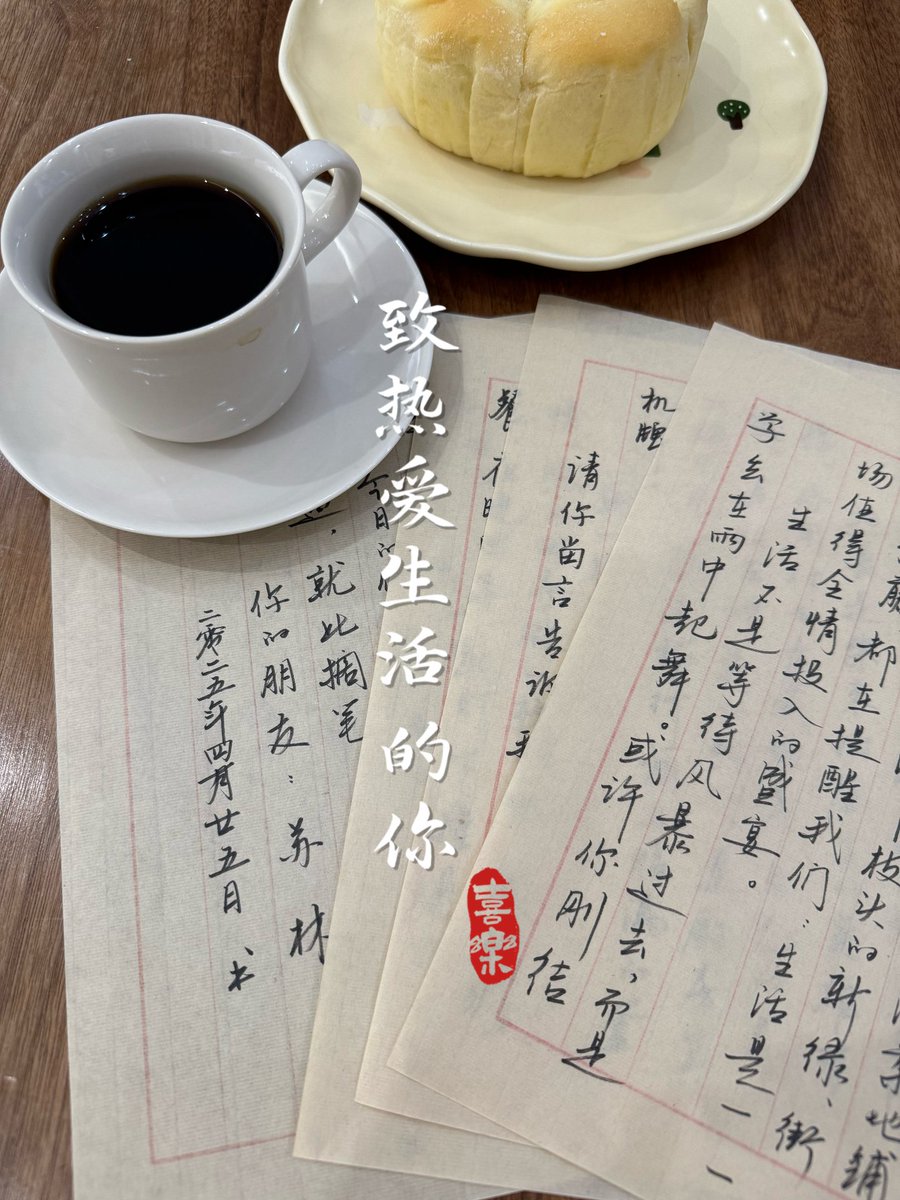 致热爱生活的你
喜樂
地鋪
枝头的新绿、街
都在提醒我们：生活是一
场值得全情投入的盛宴。
生活不是等待风暴过去，而是
学会在雨中起舞。或许你刚结
机
请你留言告诉
餐
今日的
就此搁笔
你的朋友：苏林
二零二五年四月廿五日 书